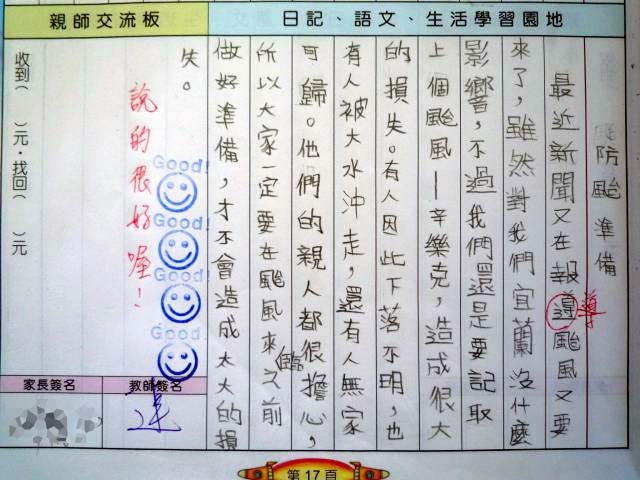 日記、語文、生活學習園地
防颱準備
最近新聞又在報導颱風又要
導
來了，雖然對我們宜蘭沒什麼
影響，不過我們還是要記取
上個颱風—辛樂克，造成很大
的損失。有人因此下落不明，也
有人被大水沖走，還有人無家
可歸。他們的親人都很擔心，
所以大家一定要在颱風來臨之前
做好準備，才不會造成太大的損
失。
親師交流板
Good!
Good!
Good!
Good!
說的很好喔！
收到（　）元‧找回（　）元
教師簽名
家長簽名
第17頁